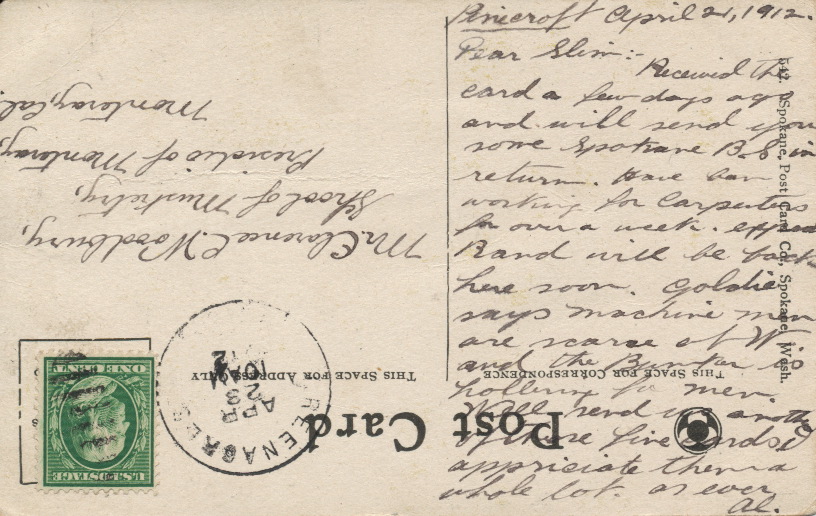 Pinecroft April 21, 1912.
Dear Slim:-
Received the
card a few days ago
and will send you
some Spokane B.S. in
return. Have been
working for Carpenters
for over a week.
Rand will be back
here soon. Goldie
says machine men
are scarse at W.P.
and the Bunker is
hollering for men.
Well send us another
of those fine cards I
appriciate them a
whole lot. as ever
Al.
Post Card
THIS SPACE FOR CORRESPONDENCE
THIS SPACE FOR ADDRESS ONLY
Mr. Clarence L. Woodbury,
School of Musketry,
Presidio of Monteray,
Monteray, Cal.
GREENACRES
APR
23
10 AM
1912
U.S. POSTAGE
ONE CENT
542. Spokane Post Card Co., Spokane, Wash.